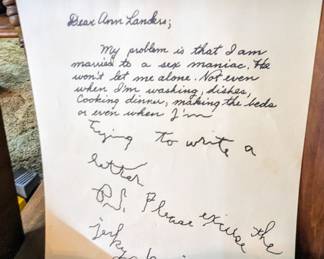 Dear Ann Landers;
My problem is that I am
married to a sex maniac. He
won't let me alone. Not even
when I'm washing, dishes,
Cooking dinner, making the beds
or even when I'm
trying to write a
letter
P.S. Please excuse the
jerky